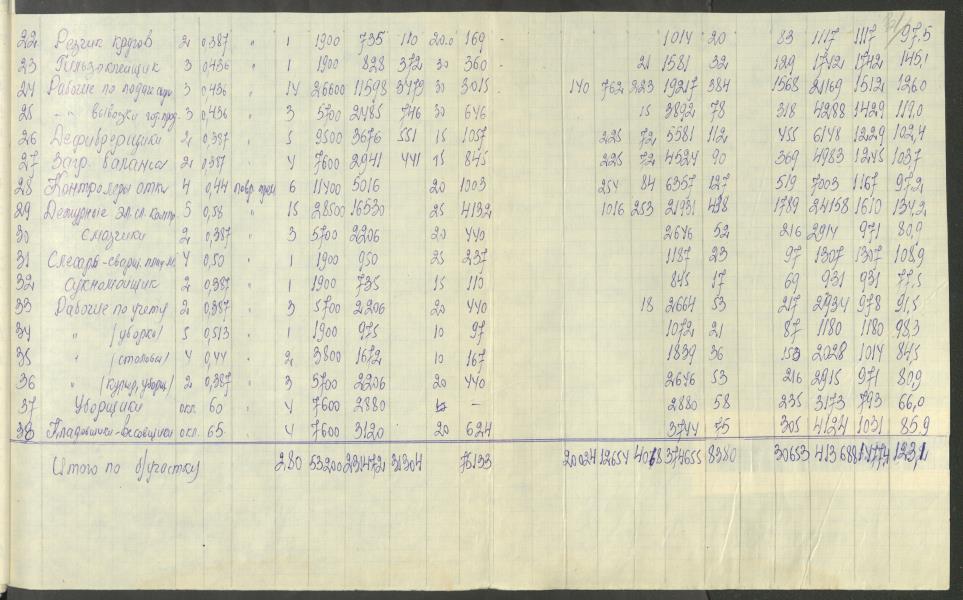 22 Резчик кругов 2 0,387 " 1 1900 735 110 20.0 169 1014 20 83 1117 1117 97,5
23 Гильзоклейщик 3 0,436 " 1 1900 828 372 30 360 21 1581 32 129 1742 1742 145,1
24 Рабочие по 3 0,436 " 14 26600 11598 3479 30 3015 140 762 223 19217 384 1568 21169 1512 126.0
25 -"- вывозки гот. прод. 3 0,436 3 5700 2485 746 30 646 15 3892 78 318 4288 1429 119,0
26 Дефибрерщики 2 0,387 " 5 9500 3676 551 15 1057 225 72 5581 112 455 6148 1229 102,4
27 Загр. баланса 2 0,387 " 4 7600 2941 441 15 845 225 72 4524 90 369 4983 1245 103,7
28 Контролеры отк 4 0,44 повр. прем 6 11400 5016 20 1003 254 84 6357 127 519 7003 1167 97,2
29 Дежурные эл. сл. 5 0,58 " 15 28500 16530 25 4132 1016 253 21931 438 1789 24158 1610 134,2
30 Смазчики 2 0,387 " 3 5700 2206 20 440 2646 52 216 2914 971 80,9
31 Слесарь-сварщ. 4 0,50 " 1 1900 950 25 237 1187 23 97 1307 1307 108,9
32 Сукномойщик 2 0,387 " 1 1900 735 15 110 845 17 69 931 931 77,5
33 Рабочие по учету 2 0,387 " 3 5700 2206 20 440 18 2664 53 217 2934 978 81,5
34 " /уборка/ 5 0,513 " 1 1900 975 10 97 1072 21 87 1180 1180 98,3
35 " /столовы/ 4 0,44 " 2 3800 1672 10 167 1839 36 153 2028 1014 84,5
36 " 2 0,387 " 3 5700 2206 20 440 2646 53 216 2915 971 80,9
37 Уборщики окл. 60 " 4 7600 2880 - 2880 58 235 3173 793 66,0
38 Кладовщики-весовщики окл. 65 " 4 7600 3120 20 624 3744 75 305 4124 1031 85,9
Итого по б/участку 280 53200 231472 31304 75133 20024 12654 4068 374655 8380 30653 413688 1477,4 123,1